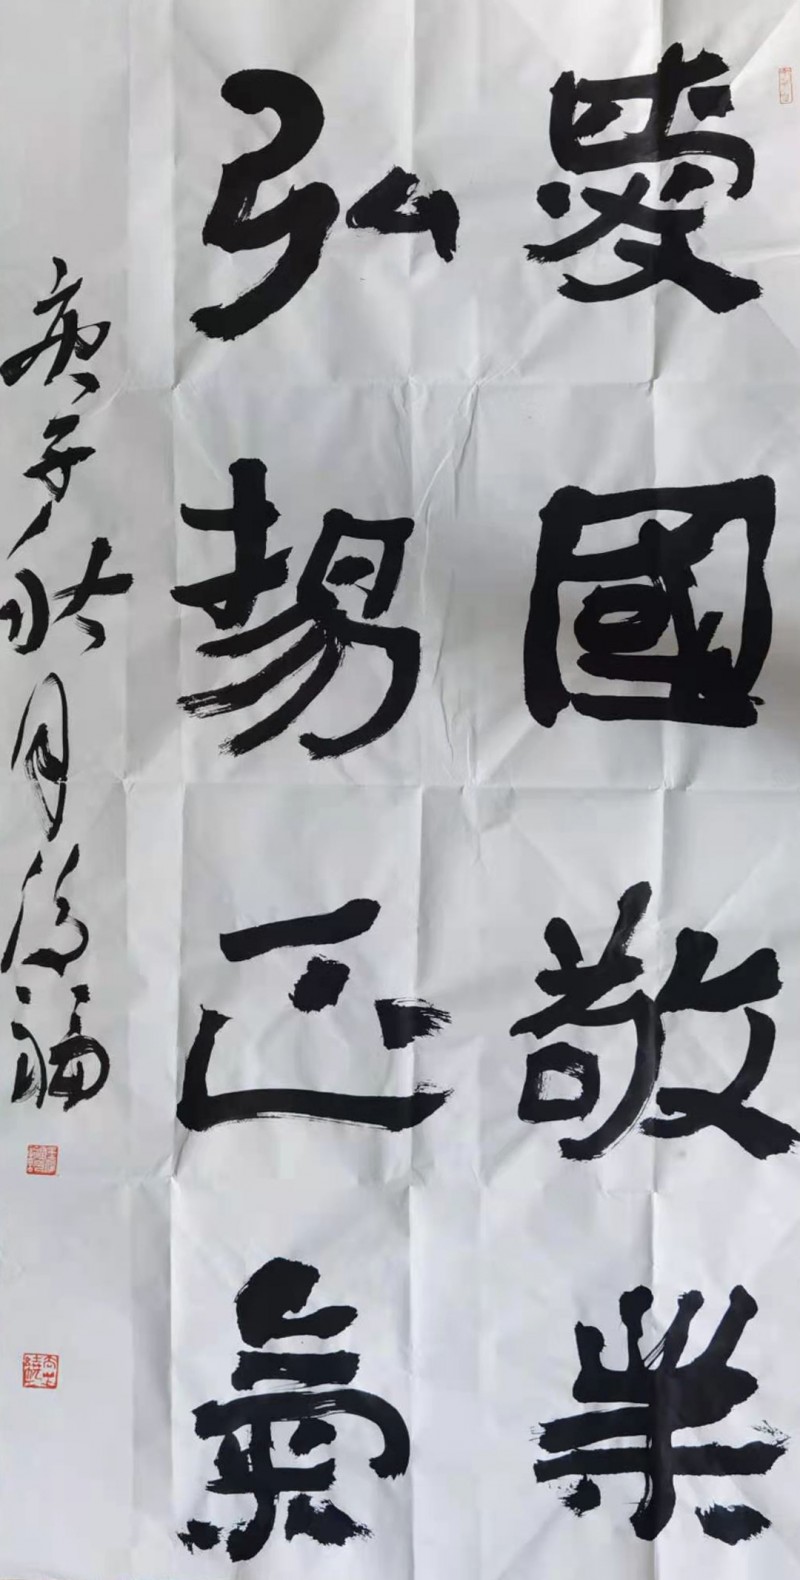 愛國敬業
弘揚正氣
庚子秋月德福